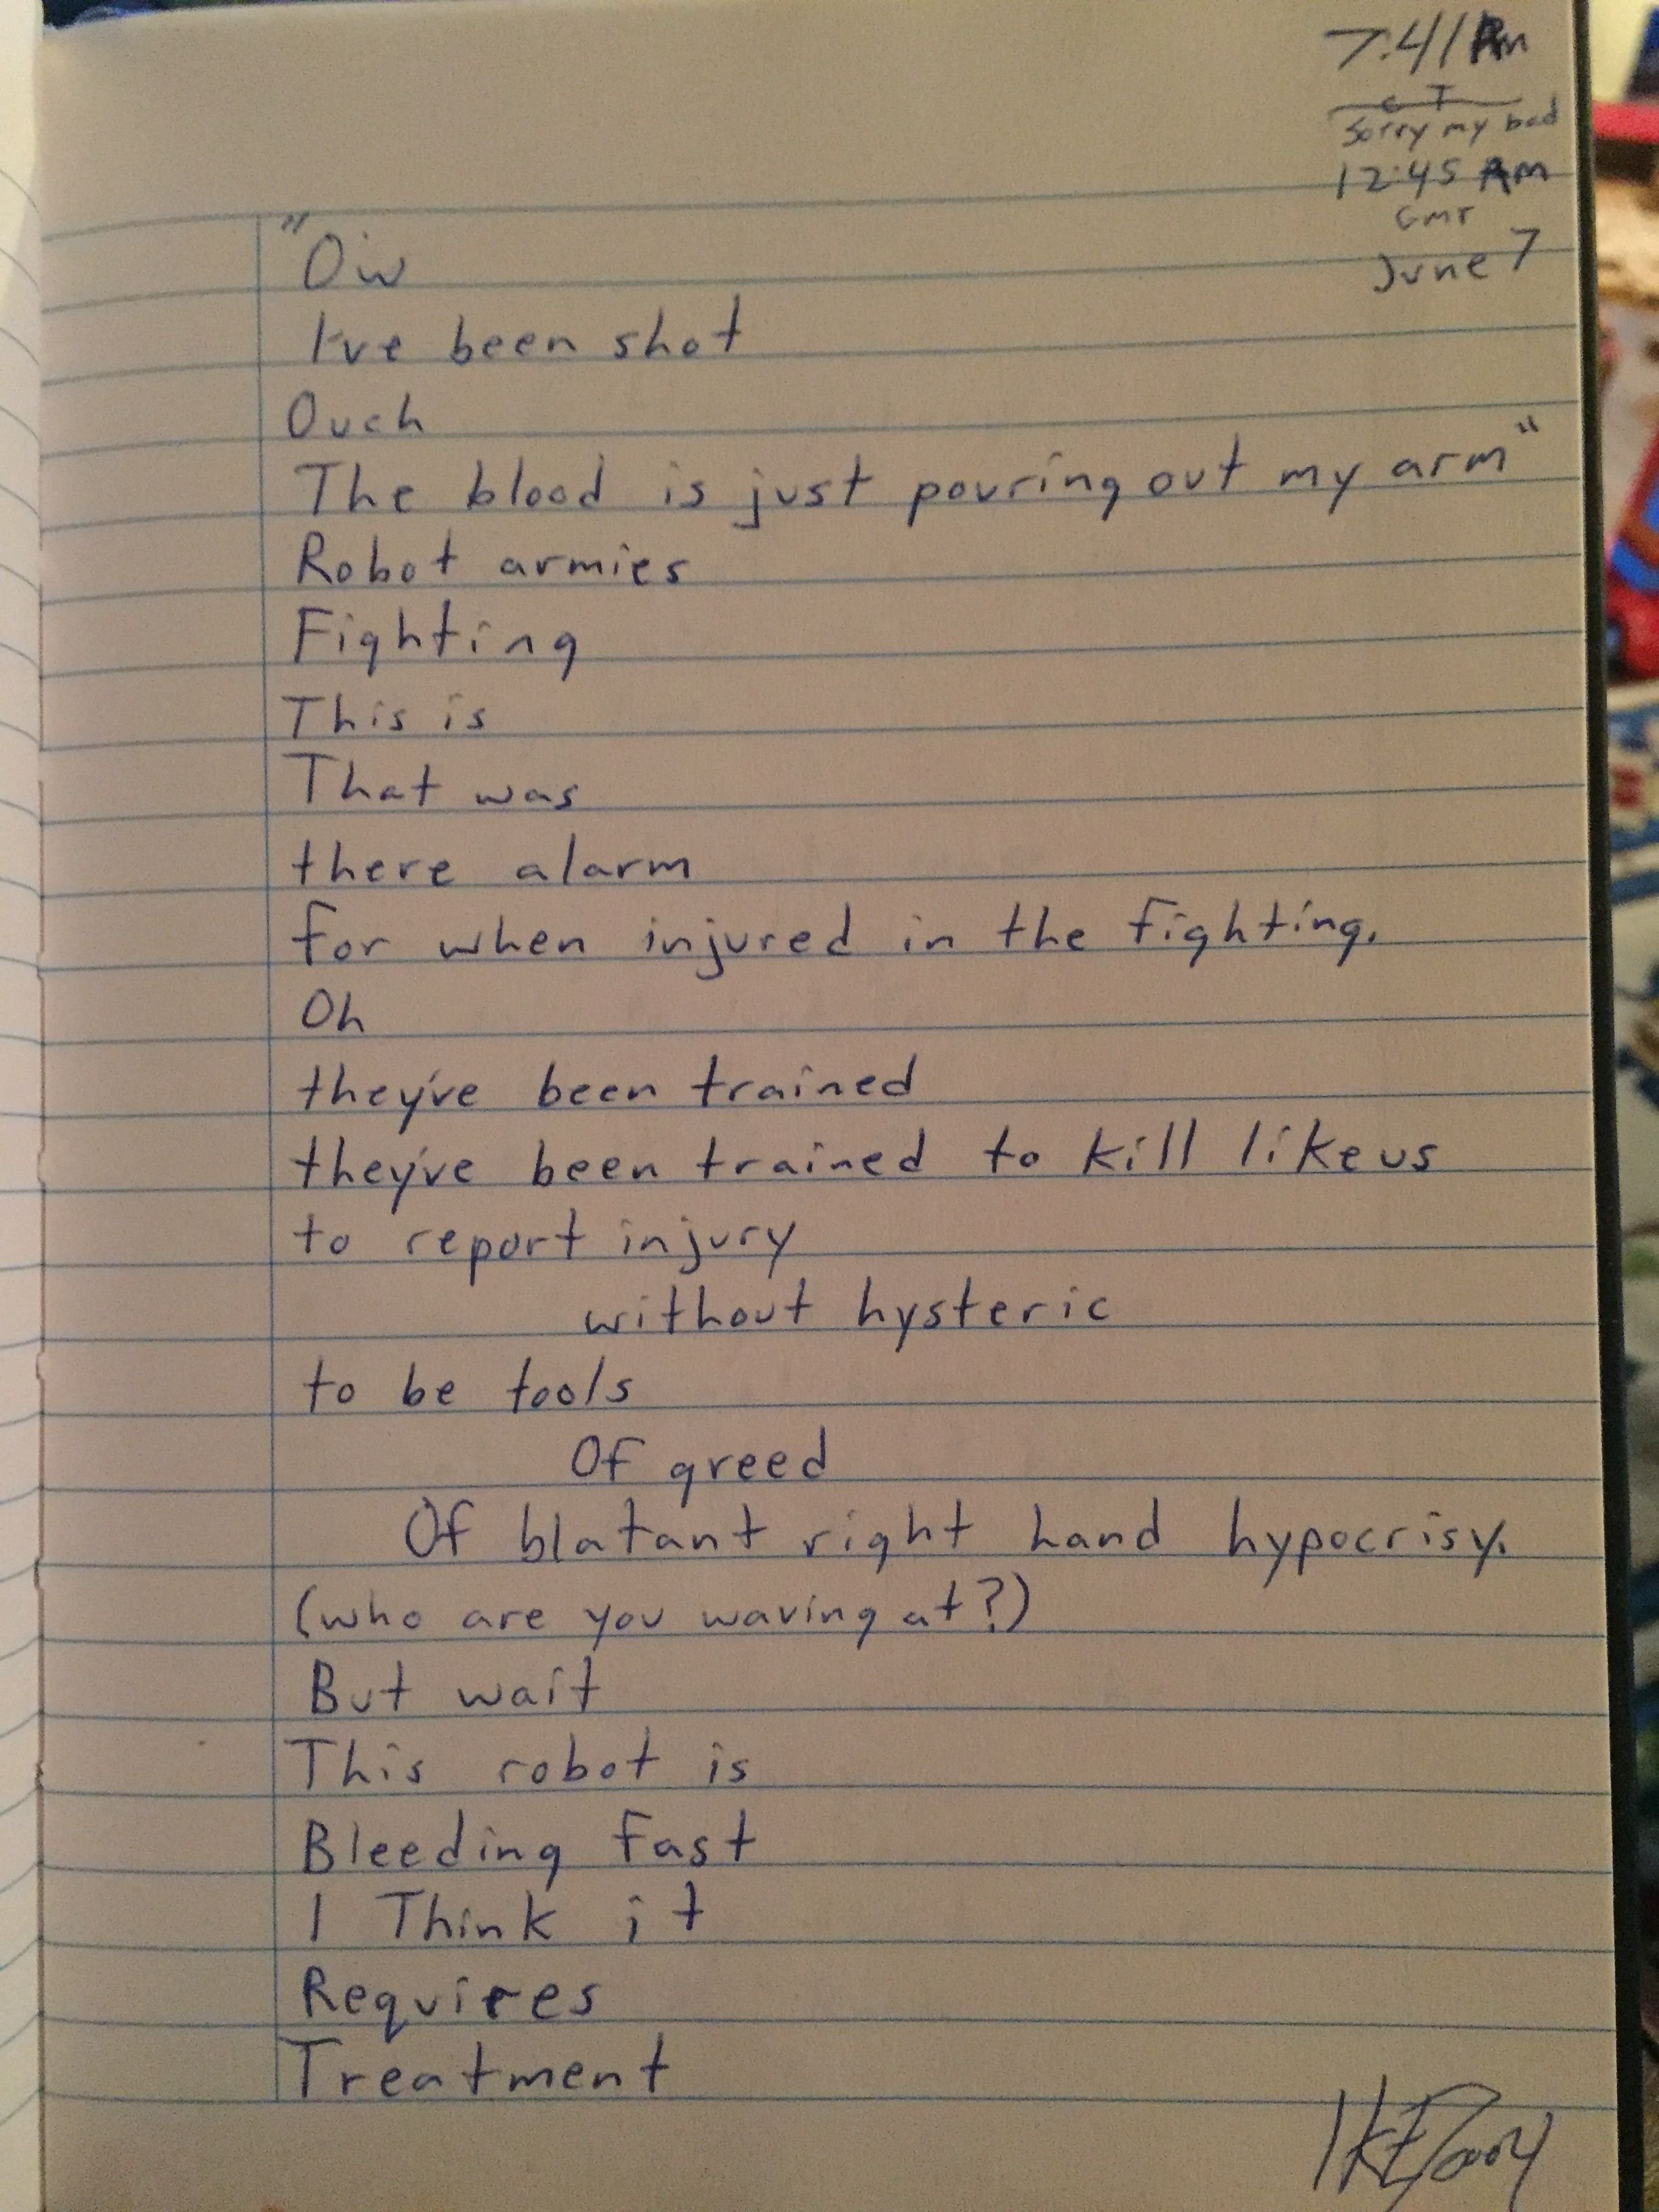 7:41 Pm
CT
Sorry my bad
12:45 AM
GMT
June 7
"Ow
I've been shot
Ouch
The blood is just pouring out my arm"
Robot armies
Fighting
This is
That was
there alarm
for when injured in the fighting.
Oh
they've been trained
they've been trained to kill like us
to report injury
without hysteric
to be tools
Of greed
Of blatant right hand hypocrisy.
(who are you waving at?)
But wait
This robot is
Bleeding fast
I Think it
Requires
Treatment